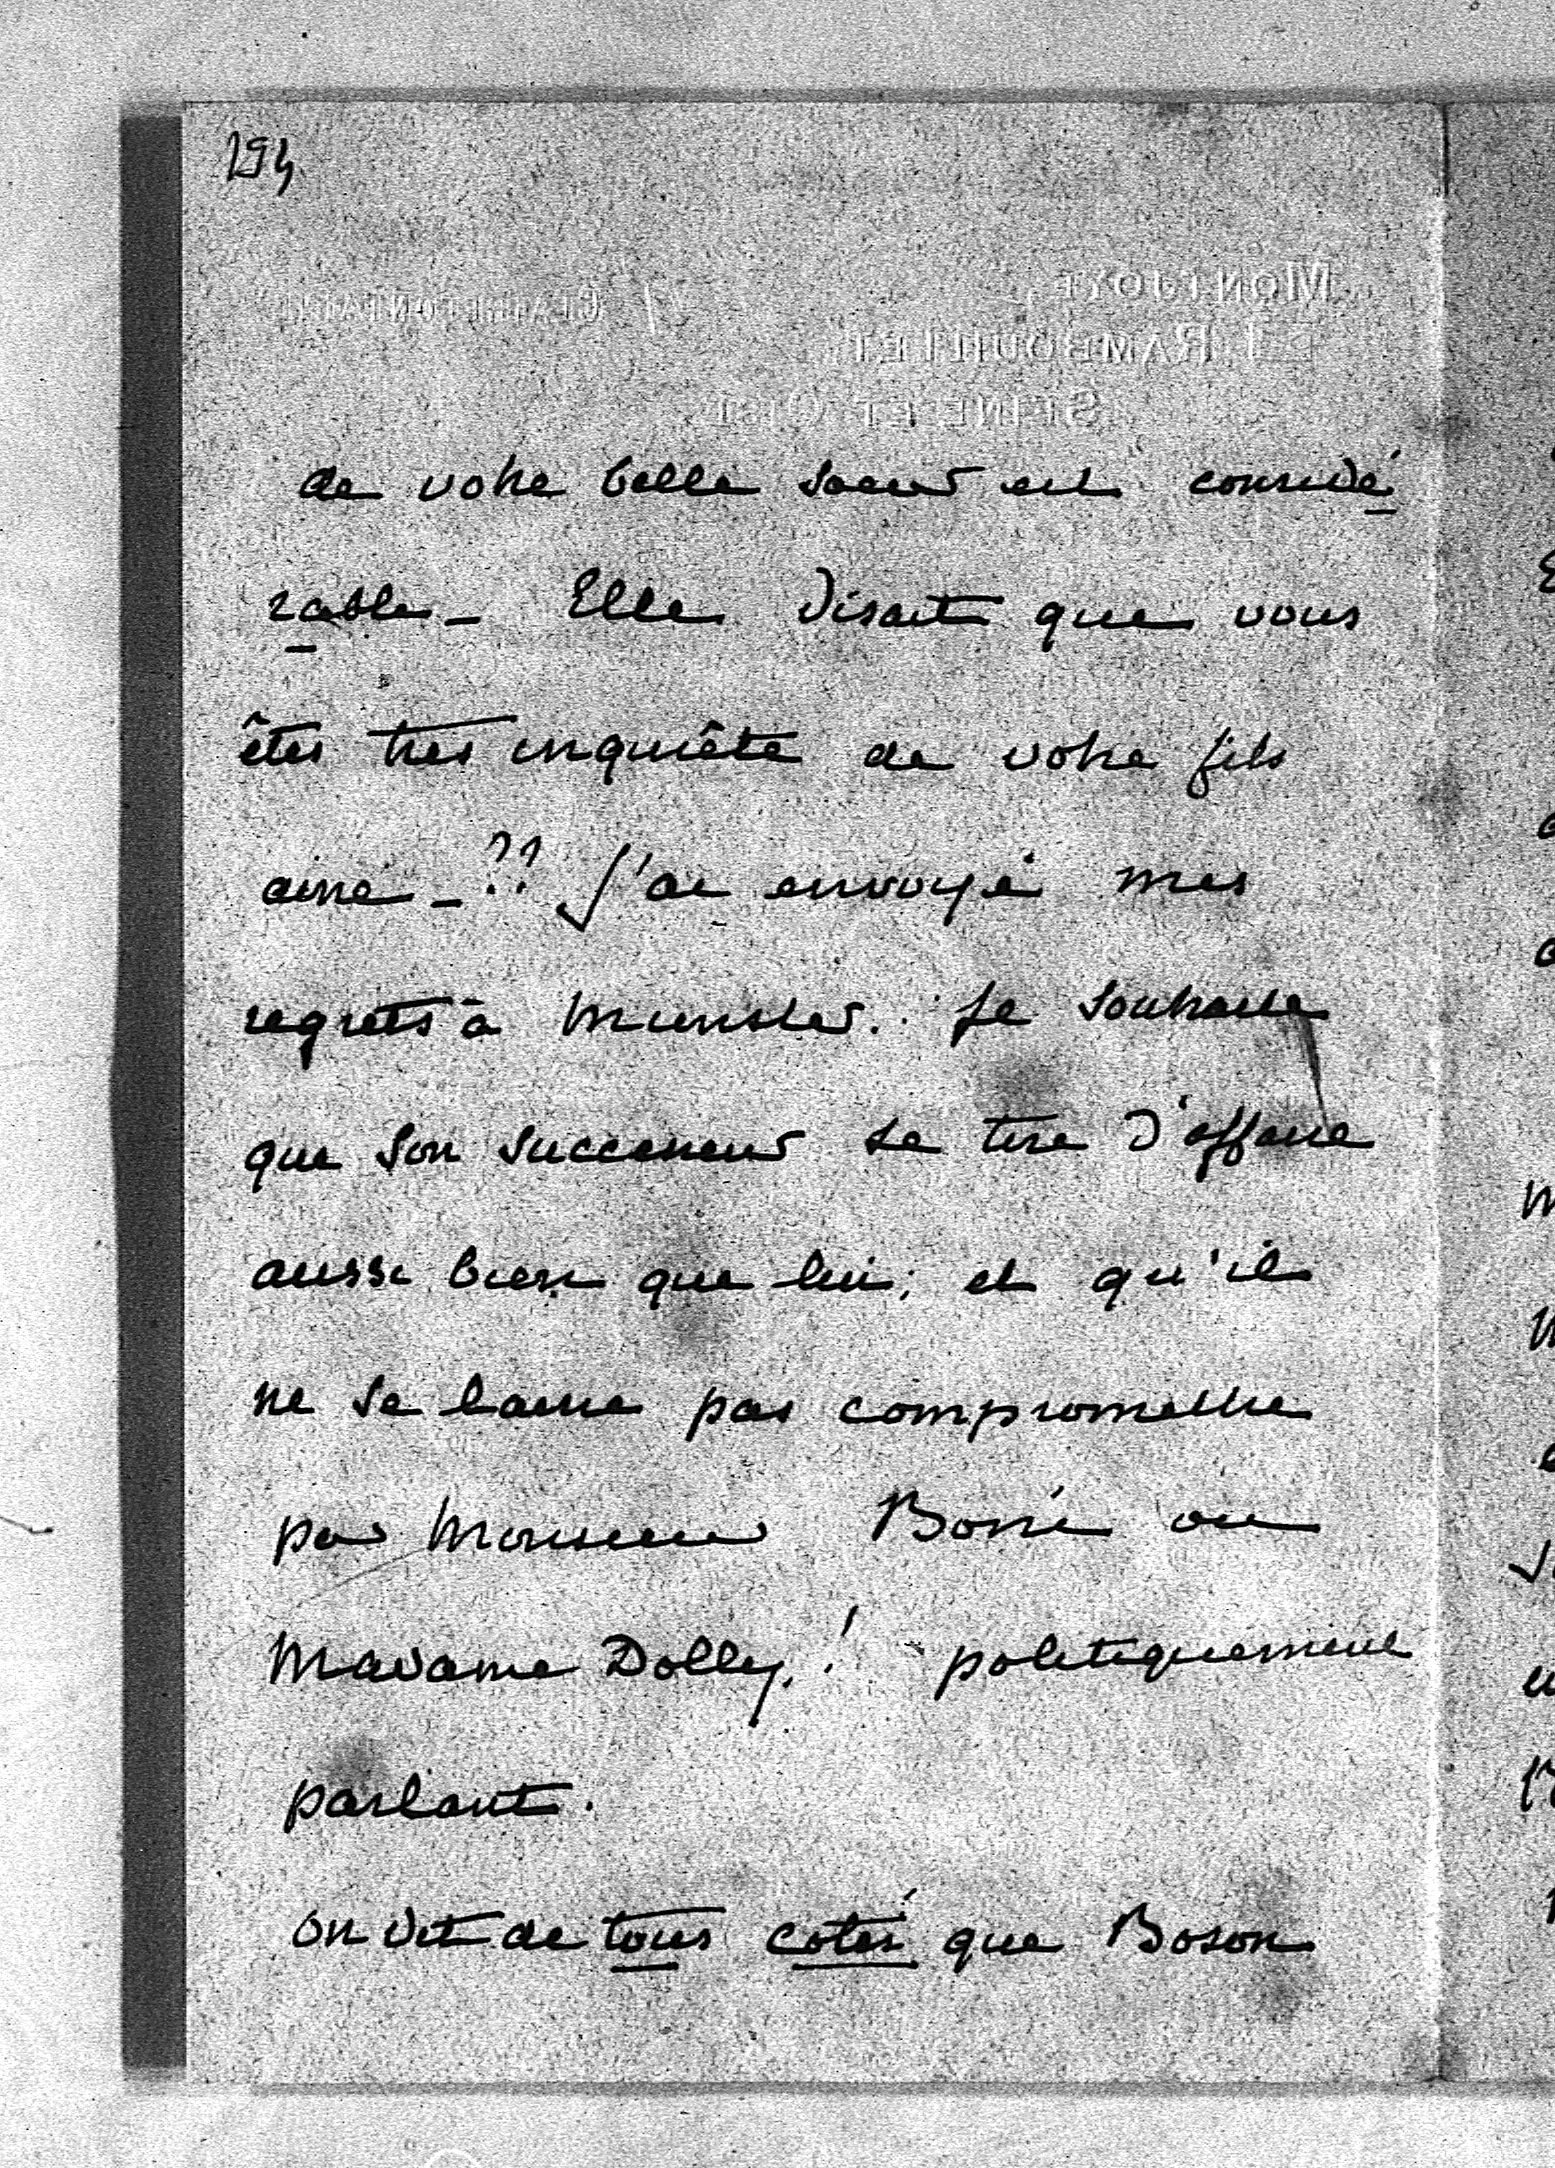 194
MONTJOYE
PAR CLAIREFONTAINE
RAMBOUILLET
SEINE ET OISE
de votre belle soeur est considé
rable_ Elle disait que vous
êtes très inquiète de votre fils
ainé_?? J'ai envoyé mes
regrets à Munster. Je souhaite
que son successeur se tire d'affaire
aussi bien que lui; et qu'il
ne se laisse pas compromettre
par Monsieur Boni ou
Madame Dolly! politiquement
parlant.
on dit de tous cotés que Boson